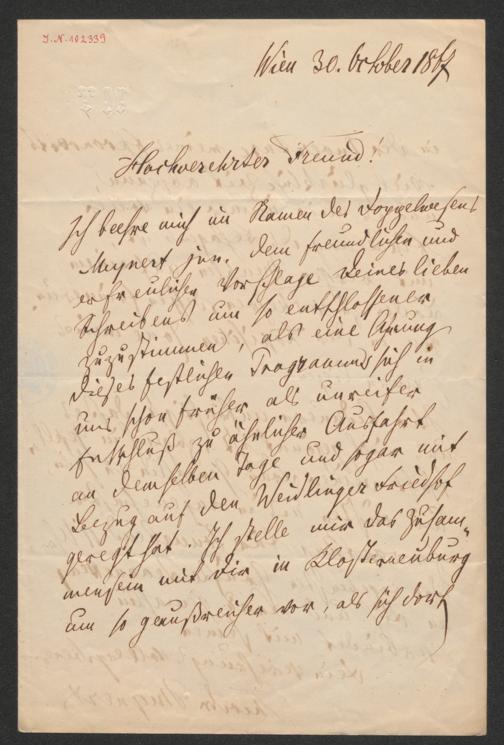 J.N. 102339
Wien 30. October 1867
Hochverehrter Freund!
Ich beehre mich im Namen des Doppelwesens
Meynert jun. dem freundlichen und
erfreulichen Vorschlage Deines lieben
Schreibens um so entschlossener
zuzustimmen, als eine Ahnung
dieses festlichen Programmes sich in
uns schon früher als unreifer
Entschluß zu ähnlicher Ausfahrt
an demselben Tage und sogar mit
Bezug auf den Weidlinger Friedhof
geregt hat. Ich stelle mir das Zusam-
mensein mit Dir in Klosterneuburg
um so genußreicher vor, als sich dort